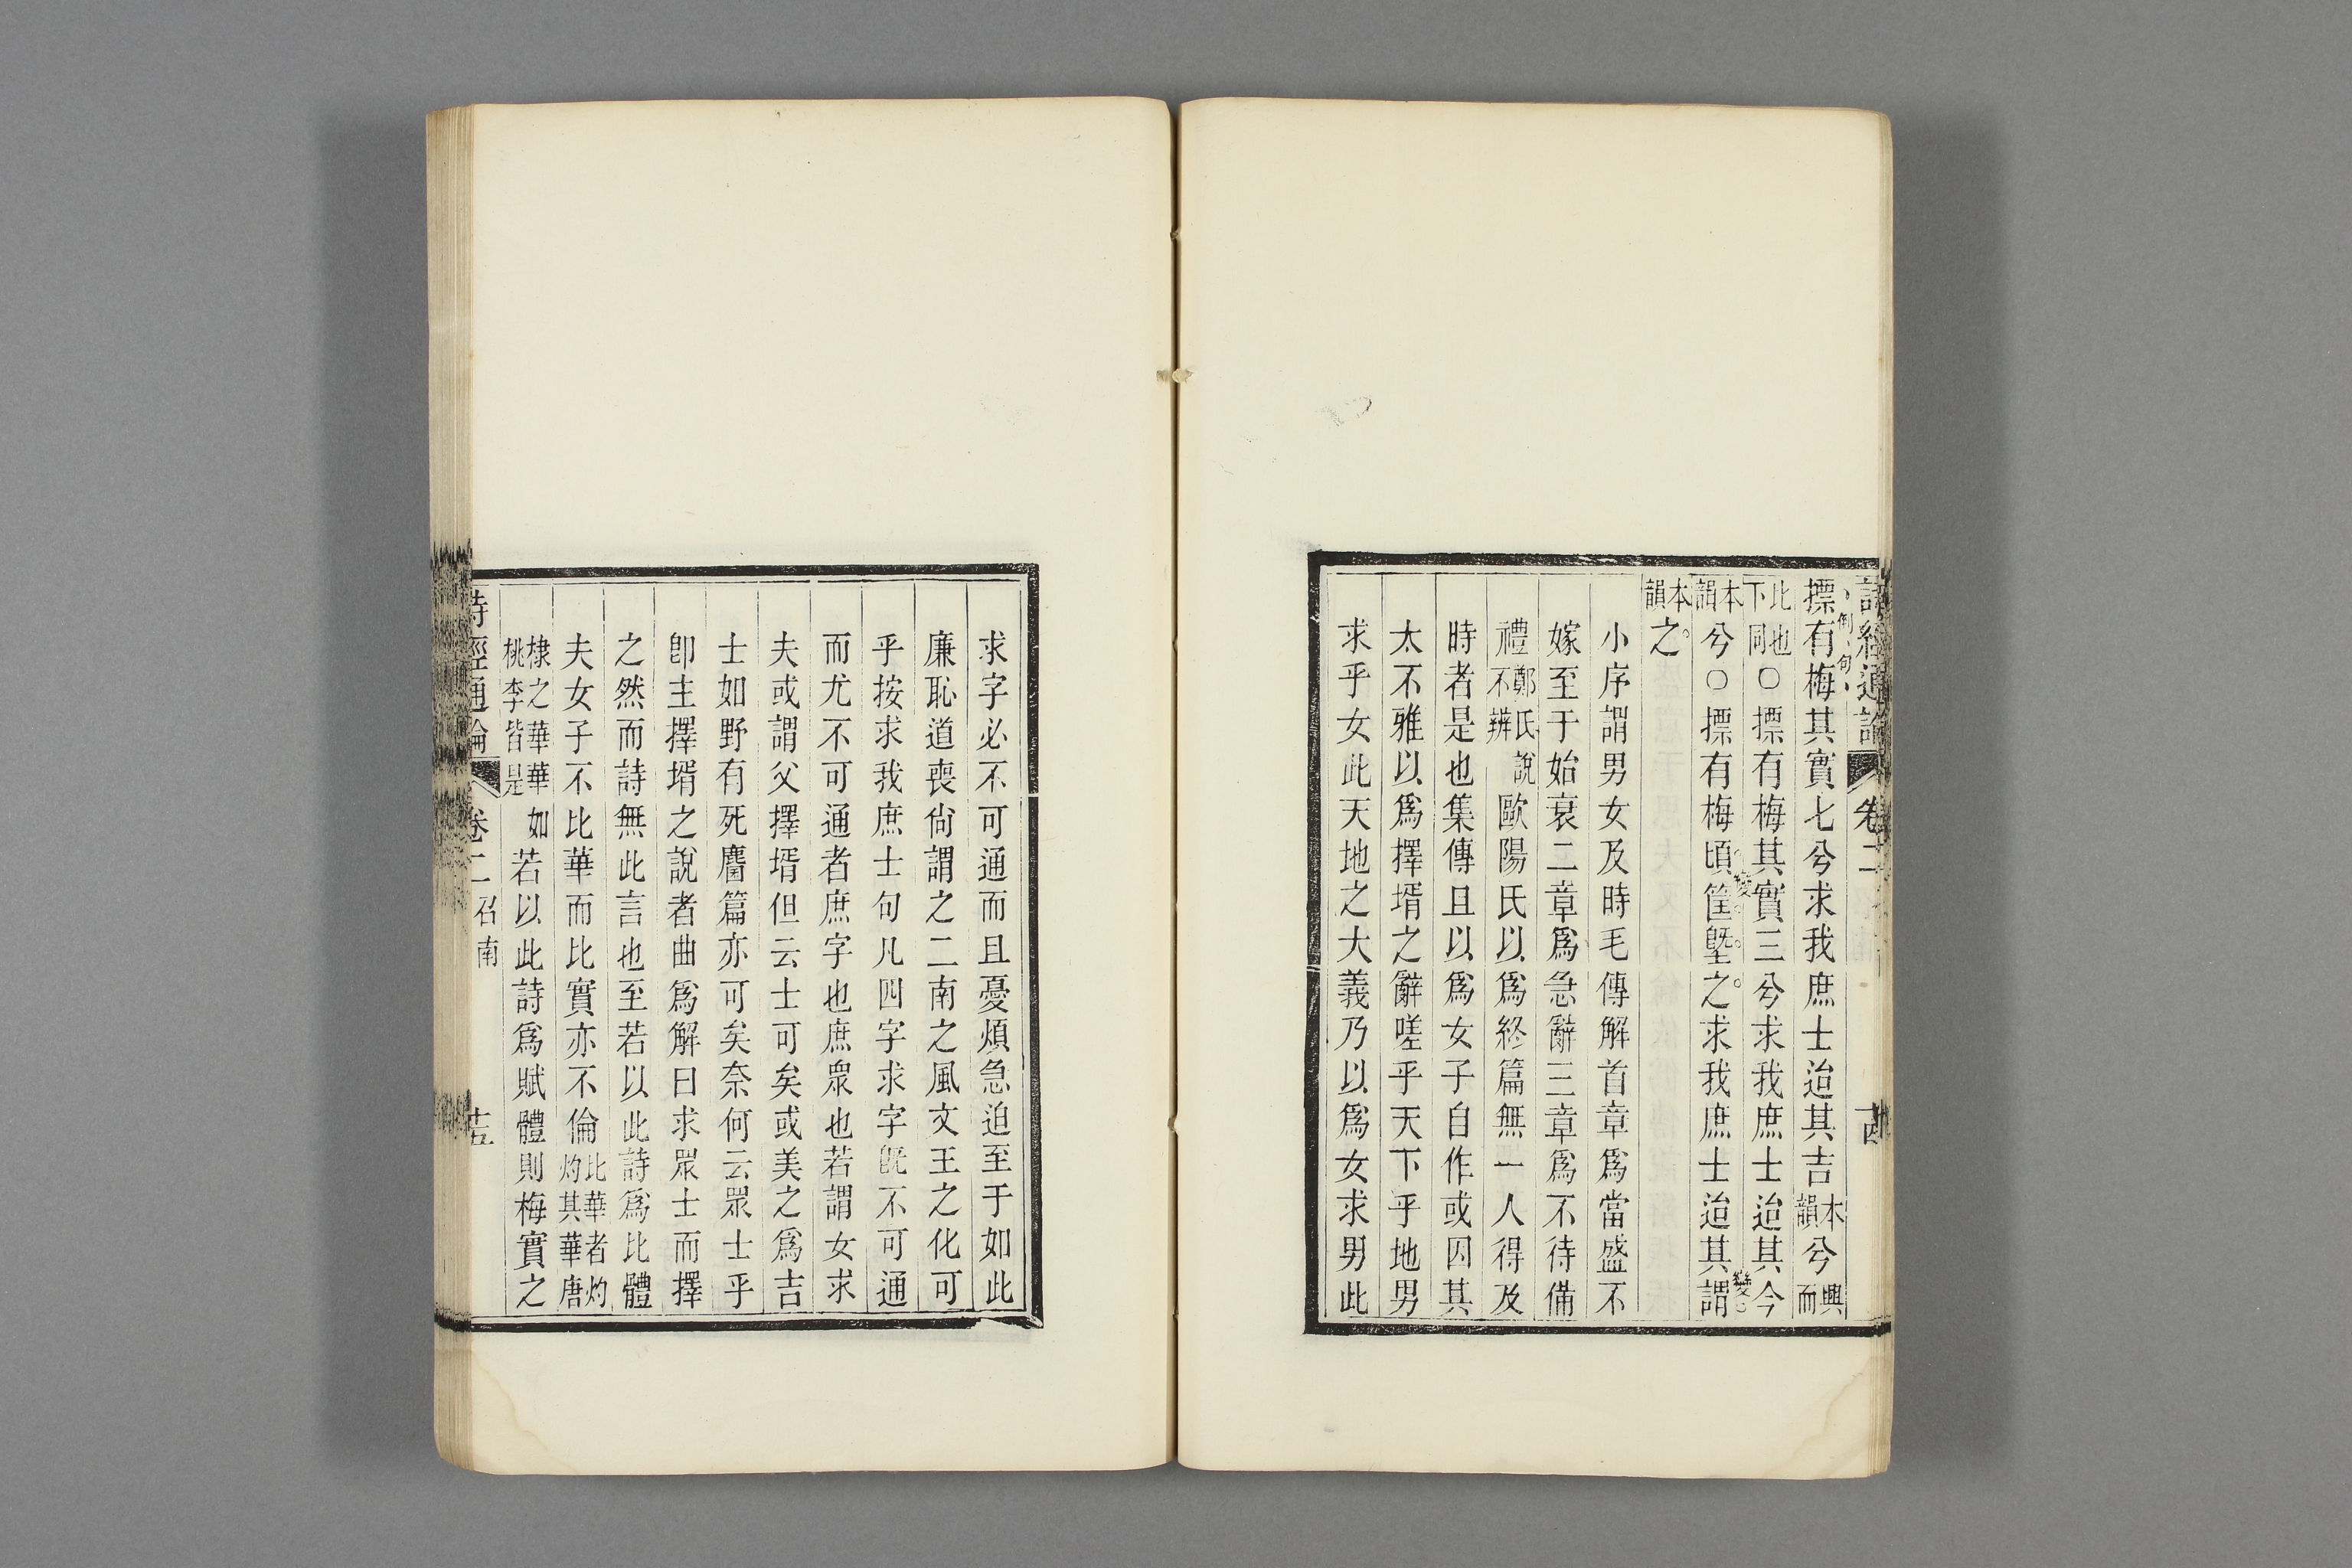 詩經通論 卷二 十四
摽有梅其實七兮求我庶士迨其吉本韻兮興而
倒句
比也下同○摽有梅其實三兮求我庶士迨其今
本韻兮○摽有梅頃筐塈之求我庶士迨其謂
變
變
本韻之
小序謂男女及時毛傳解首章為當盛不
嫁至于始衰二章為急辭三章為不待備
禮鄭氏說不辨歐陽氏以為終篇無一人得及
時者是也集傳且以為女子自作或因其
太不雅以為擇壻之辭嗟乎天下乎地男
求乎女此天地之大義乃以為女求男此
求字必不可通而且憂煩急迫至于如此
廉恥道喪尚謂之二南之風文王之化可
乎按求我庶士句凡四字求字旣不可通
而尤不可通者庶字也庶眾也若謂女求
夫或謂父擇壻但云士可矣或美之為吉
士如野有死麕篇亦可矣奈何云眾士乎
卽主擇壻之說者曲為解曰求眾士而擇
之然而詩無此言也至若以此詩為比體
夫女子不比華而比實亦不倫比華者灼灼其華唐
棣之華華如桃李皆是若以此詩為賦體則梅實之
詩經通論 卷二 召南 十五